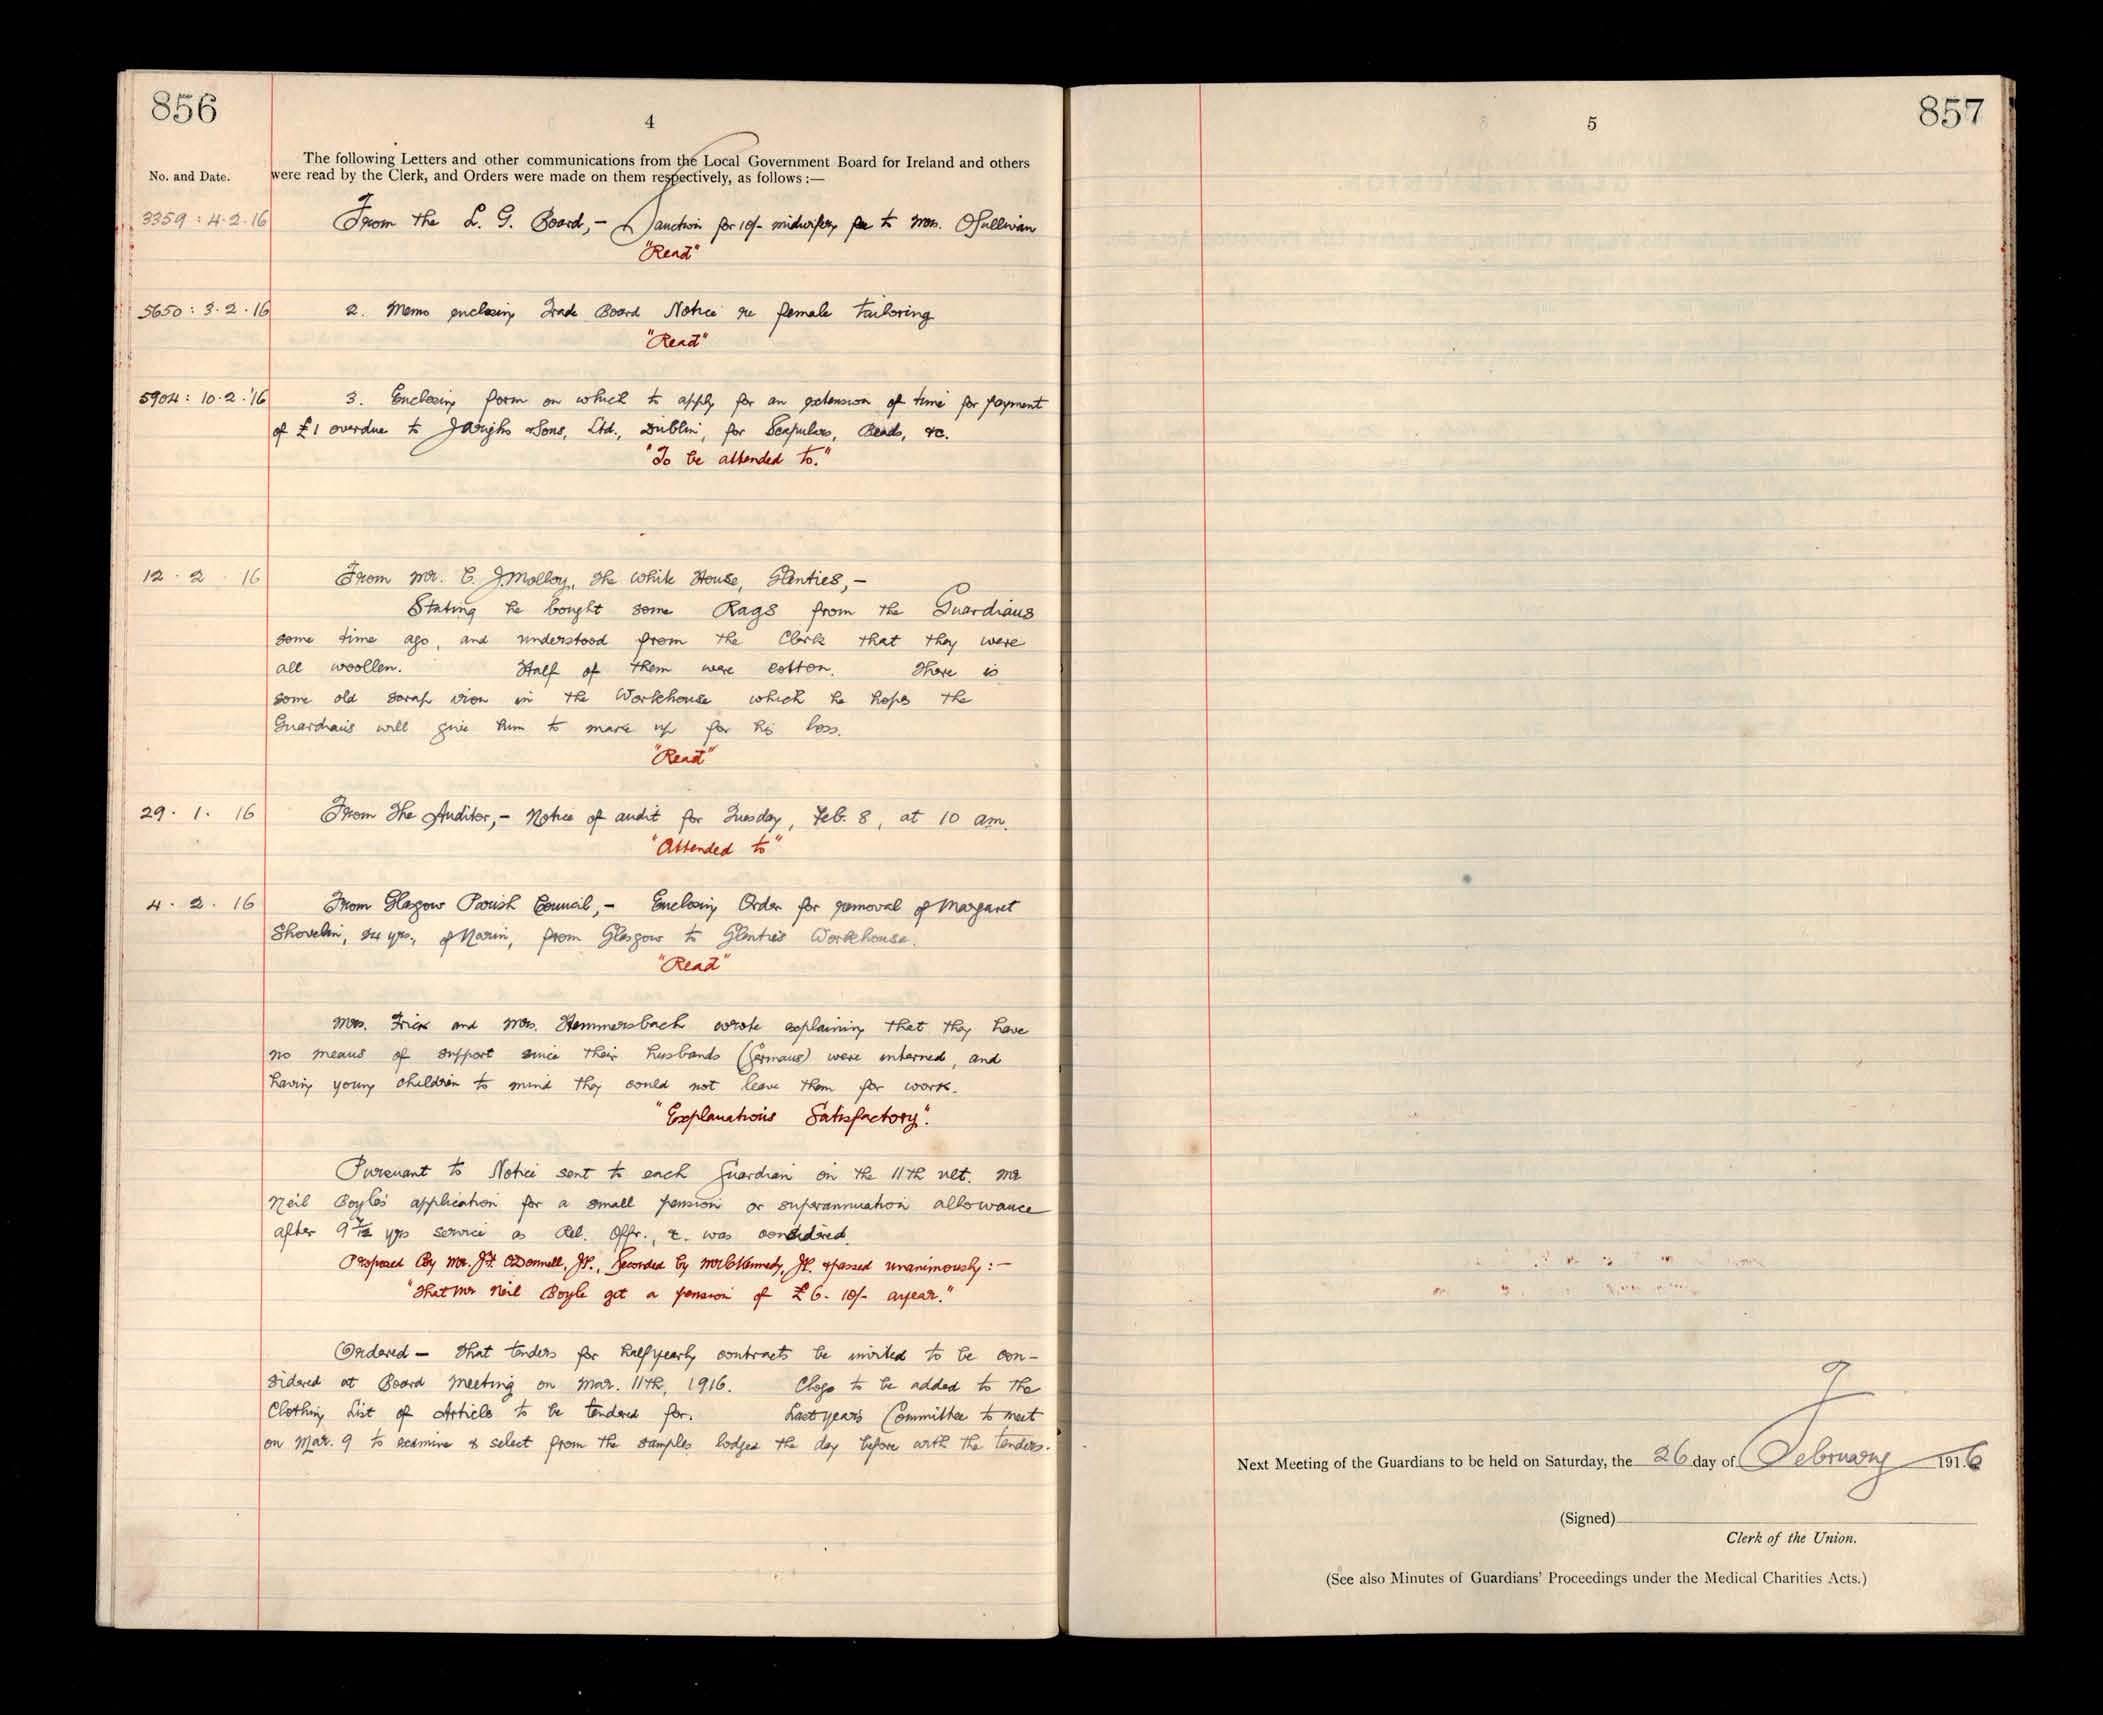 856
4
The following Letters and other communications from the Local Government Board for Ireland and others
No. and Date.
were read by the Clerk, and Orders were made on them respectively, as follows :—
3359 : 4.2.16 From the L. G. Board, – Sanction for 10/- midwifery fee to Mrs. O'Sullivan
"Read"
5650 : 3.2.16 2. Memo enclosing Trade Board Notice re female tailoring
"Read"
5904 : 10.2.'16 3. Enclosing form on which to apply for an extension of time for payment
of £1 overdue to & Sons, Ltd., Dublin, for Scapulars, Beads, &c.
"To be attended to."
12 . 2 . 16 From Mr. C. J. Molloy, The White House, Glenties, –
Stating he bought some Rags from the Guardians
some time ago, and understood from the Clerk that they were
all woollen. Half of them were cotton. There is
some old scrap iron in the Workhouse which he hopes the
Guardians will give him to make up for his loss.
"Read"
29 . 1 . 16 From The Auditor, – Notice of audit for Tuesday, Feb. 8, at 10 am.
"Attended to"
4 . 2 . 16 From Glasgow Parish Council, – Enclosing Order for removal of Margaret
Shovelin, 24 yrs., of Narin, from Glasgow to Glenties Workhouse.
"Read"
Mrs. Frick and Mrs. Hemmersbach wrote explaining that they have
no means of support since their husbands (Germans) were interned, and
having young children to mind they could not leave them for work.
"Explanations Satisfactory".
Pursuant to Notice sent to each Guardian on the 11th ult. Mr
Neil Boyle's application for a small pension or superannuation allowance
after 9 7/12 yrs service as Rel. Offr., &. was considered.
Proposed by Mr. J. O'Donnell, JP., Seconded by Mr Kennedy, JP. & passed unanimously : –
"That Mr Neil Boyle get a pension of £6 - 10/- a year."
Ordered – That tenders for halfyearly contracts be invited to be con-
sidered at Board Meeting on Mar. 11th, 1916. Clogs to be added to the
Clothing List of Articles to be tendered for. Last year's Committee to meet
on Mar. 9 to examine & select from the samples lodged the day before with the tenders.
5
857
Next Meeting of the Guardians to be held on Saturday, the 26 day of February 1916
(Signed)
Clerk of the Union.
(See also Minutes of Guardians' Proceedings under the Medical Charities Acts.)